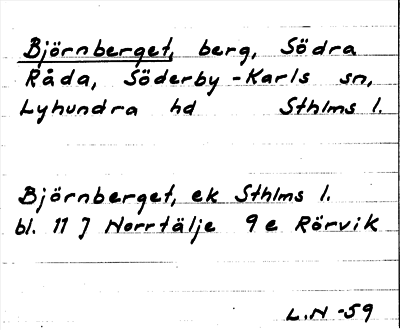 Björnberget, berg, Södra
Råda, Söderby-Karls sn,
Lyhundra hd Sthlms l.
Björnberget, ek Sthlms l.
bl. 11 J Norrtälje 9 e Rörvik
L.N -59